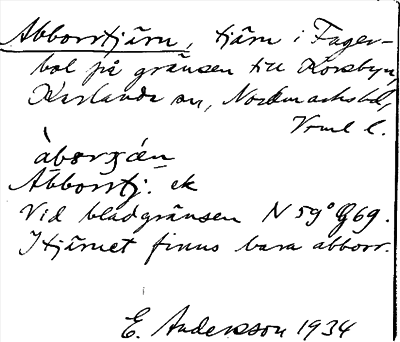 Abborrtjärn, tjärn i Fager-
bol på gränsen till Korsbyn,
Karlanda sn, Nordmarks hd,
Vrml l.
àbərʒæ̀n
Abborrtj. ek
Vid bladgränsen N 59° Ö 69.
I tjärnet finns bara abborr.
E. Andersson 1934